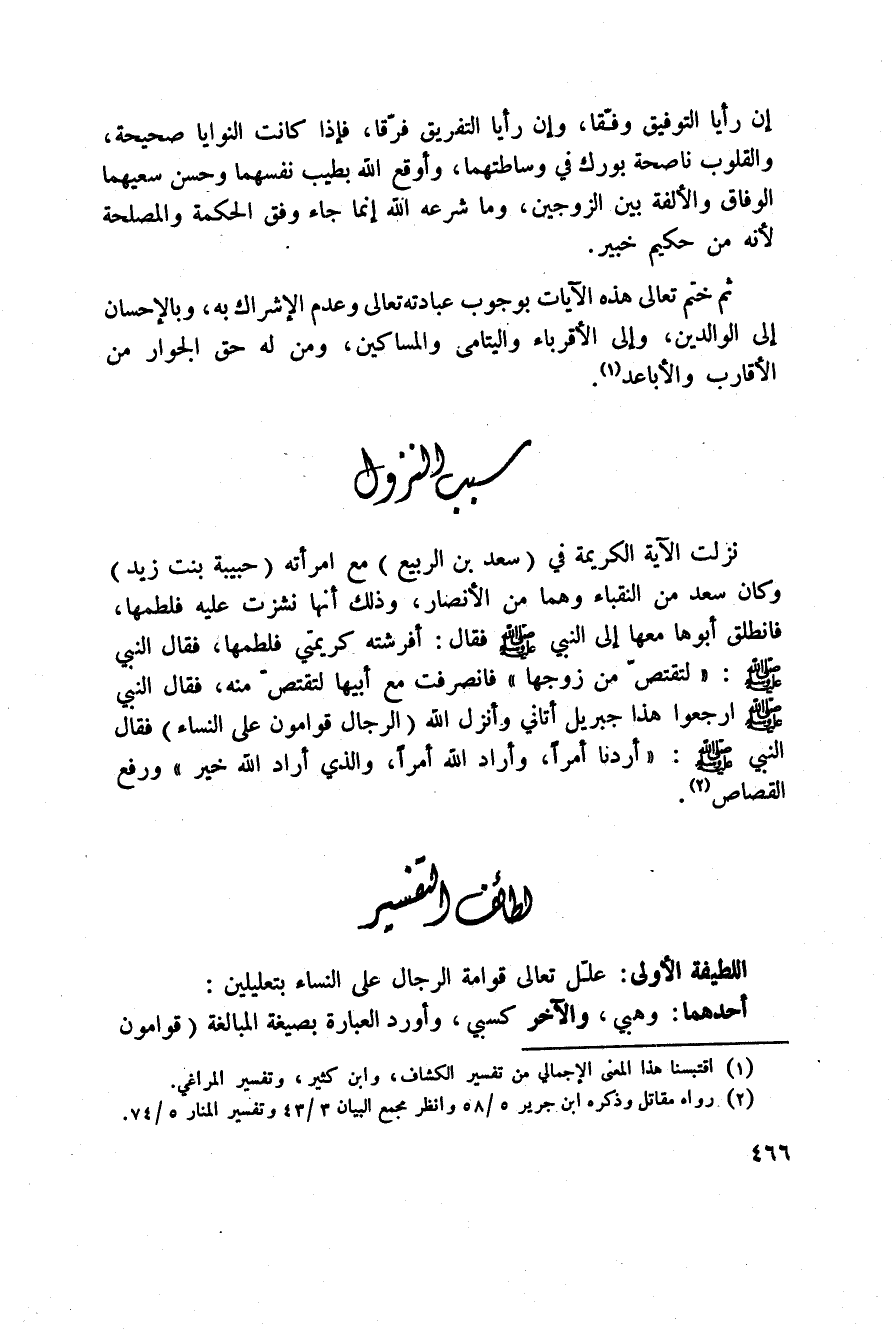 إن رأيا التوفيق وفّقا، وإن رأيا التفريق فرّقا، فإذا كانت النوايا صحيحة،
والقلوب ناصحة بورك في وساطتهما، وأوقع الله بطيب نفسهما وحسن سعيهما
الوفاق والألفة بين الزوجين، وما شرعه الله إنما جاء وفق الحكمة والمصلحة
لأنه من حكيم خبير.
ثم ختم تعالى هذه الآيات بوجوب عبادته تعالى وعدم الإشراك به، وبالإحسان
إلى الوالدين، وإلى الأقرباء واليتامى والمساكين، ومن له حق الجوار من
الأقارب والأباعد(١).
سبب النزول
نزلت الآية الكريمة في (سعد بن الربيع) مع امرأته (حبيبة بنت زيد)
وكان سعد من النقباء وهما من الأنصار، وذلك أنها نشزت عليه فلطمها،
فانطلق أبوها معها إلى النبي ﷺ فقال: أفرشته كريمتي فلطمها، فقال النبي
ﷺ : « لتقتصّ من زوجها » فانصرفت مع أبيها لتقتصّ منه، فقال النبي
ﷺ ارجعوا هذا جبريل أتاني وأنزل الله (الرجال قوامون على النساء) فقال
النبي ﷺ : « أردنا أمراً، وأراد الله أمراً، والذي أراد الله خير » ورفع
القصاص(٢).
لطائف التفسير
اللطيفة الأولى: علّل تعالى قوامة الرجال على النساء بتعليلين :
أحدهما: وهبي، والآخر كسبي، وأورد العبارة بصيغة المبالغة (قوامون
(١) اقتبسنا هذا المعنى الإجمالي من تفسير الكشاف، وابن كثير، وتفسير المراغي.
(٢) رواه مقاتل وذكره ابن جرير ٥/٥٨ وانظر مجمع البيان ٤٣/٣ وتفسير المنار ٧٤/٥.
٤٦٦